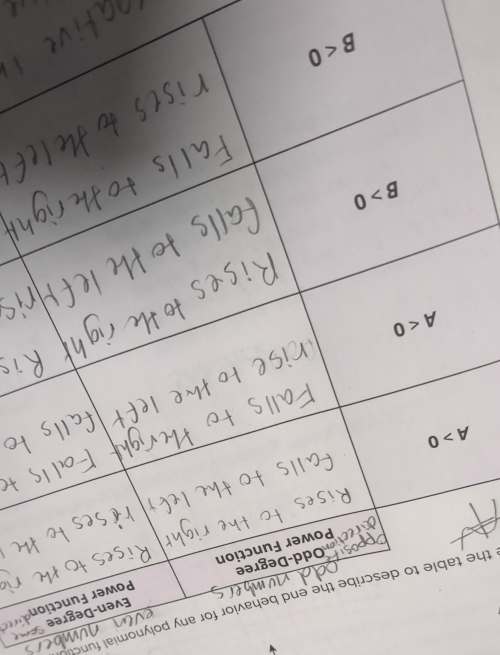 the table to describe the end behavior for any polynomial
odd numbers
even numbers
opposite direction
same
Odd-Degree
Power Function
Even-Degree
Power Function
A > 0
Rises to the right
falls to the left
Rises to the
rises to the
A < 0
Falls to the right
rise to the left
Falls
falls to
B > 0
Rises to the right
falls to the left
B < 0
Falls to the right
rises to the left